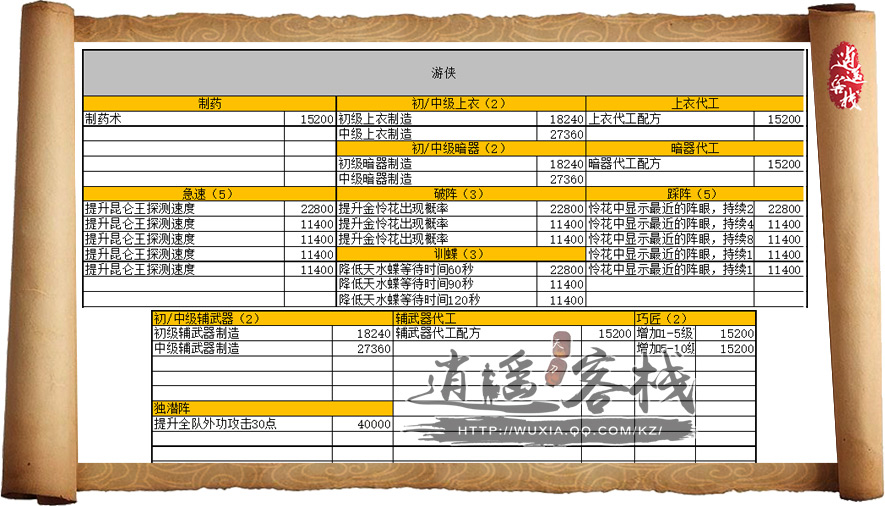 逍遥客栈
游侠
制药 初/中级上衣（2） 上衣代工
制药术 15200 初级上衣制造 18240 上衣代工配方 15200
中级上衣制造 27360
初/中级暗器（2） 暗器代工
初级暗器制造 18240 暗器代工配方 15200
中级暗器制造 27360
急速（5） 破阵（3） 踩阵（5）
提升昆仑王探测速度 22800 提升金怜花出现概率 22800 怜花中显示最近的阵眼，持续2 22800
提升昆仑王探测速度 11400 提升金怜花出现概率 11400 怜花中显示最近的阵眼，持续4 11400
提升昆仑王探测速度 11400 提升金怜花出现概率 11400 怜花中显示最近的阵眼，持续8 11400
提升昆仑王探测速度 11400 训蝶（3） 怜花中显示最近的阵眼，持续1 11400
提升昆仑王探测速度 11400 降低天水蝶等待时间60秒 22800 怜花中显示最近的阵眼，持续1 11400
降低天水蝶等待时间90秒 11400
降低天水蝶等待时间120秒 11400
初/中级辅武器（2） 辅武器代工 巧匠（2）
初级辅武器制造 18240 辅武器代工配方 15200 增加1-5级 15200
中级辅武器制造 27360 增加5-10级 15200
独潜阵
提升全队外功攻击30点 40000
天刀
逍遥客栈
HTTP://WUXIA.QQ.COM/KZ/